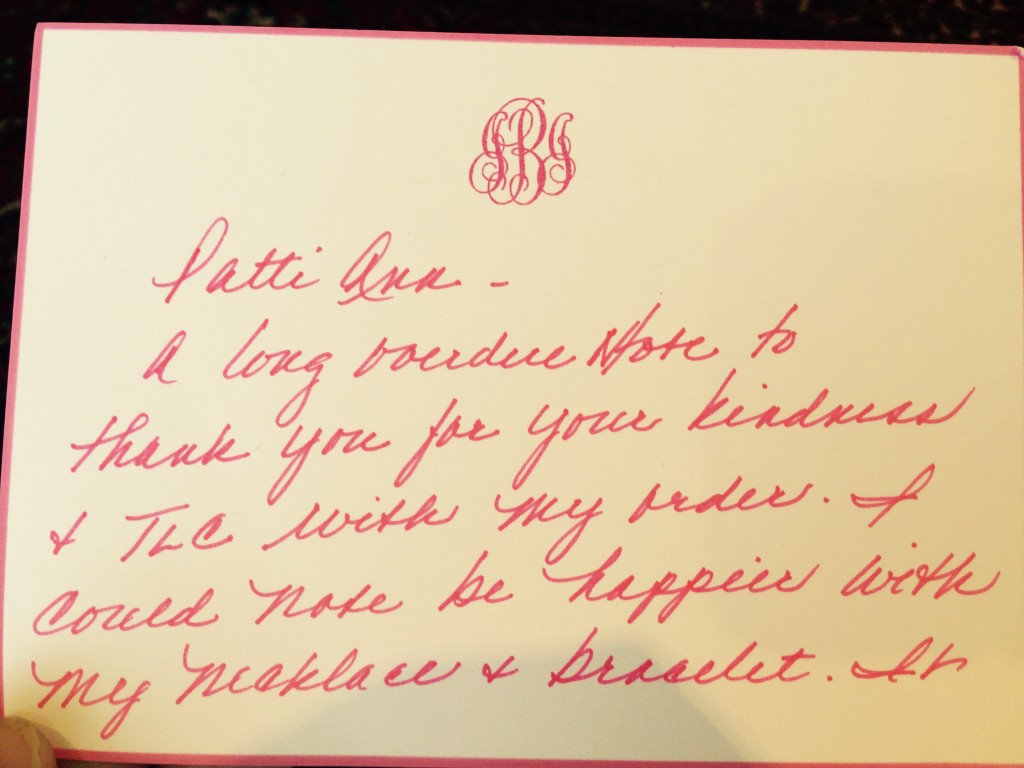 Patti Ann -
A long overdue Note to
thank you for your kindness
& TLC with my order. I
could note be happier with
my necklace & bracelet. It